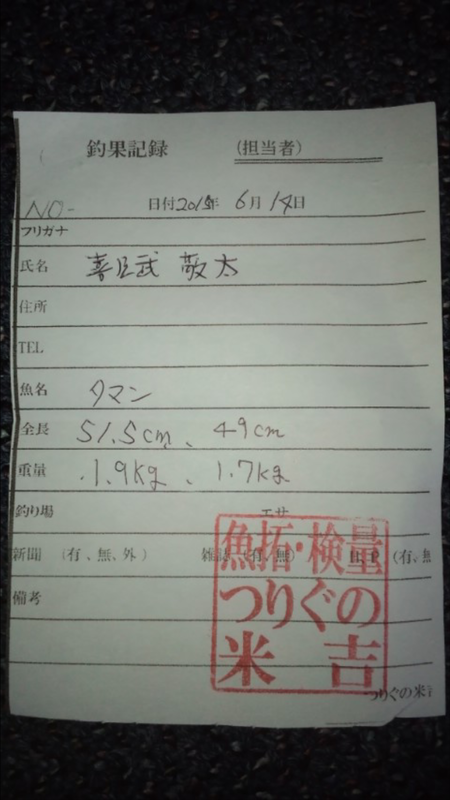 釣果記録 (担当者)
NO- 日付2015年 6月14日
フリガナ
氏名 喜友武 敬太
住所
TEL
魚名 タマン
全長 51.5cm、49cm
重量 1.9kg、1.7kg
釣り場 エサ
新聞 (有、無、外) 雑誌 (有、無) H.P (有、無
備考
魚拓・検量
つりぐの
米吉
つりぐの米吉